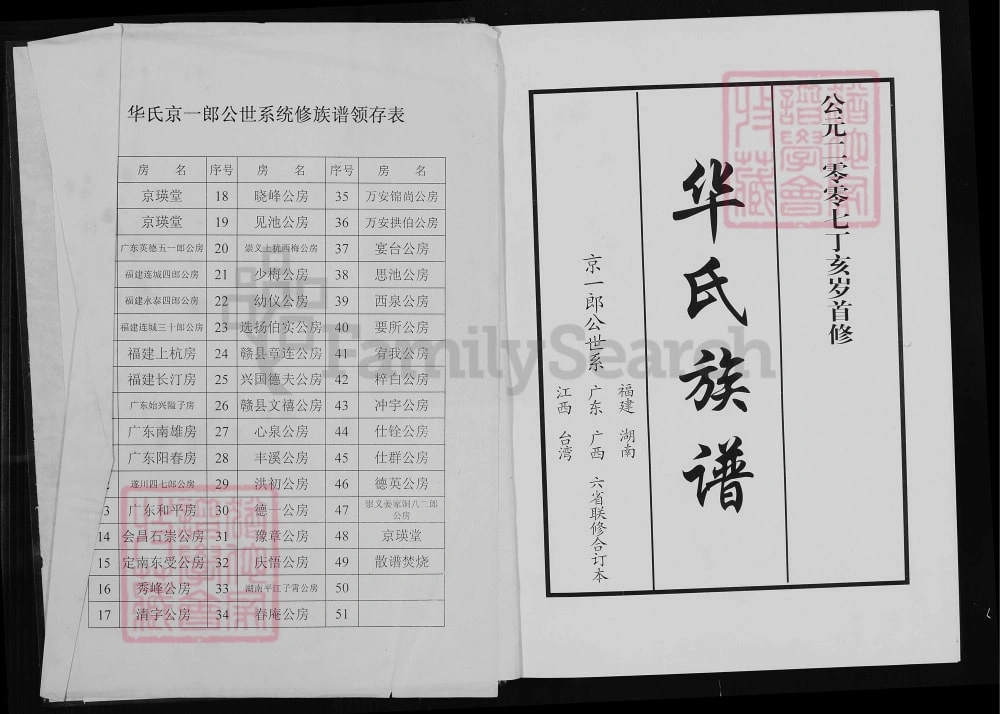 华氏京一郎公世系统修族谱领存表
房 名 序号 房 名 序号 房 名
京瑛堂 18 晓峰公房 35 万安锦尚公房
京瑛堂 19 见池公房 36 万安拱伯公房
广东英德五一郎公房 20 崇义上犹西梅公房 37 宴台公房
福建连城四郎公房 21 少梅公房 38 思池公房
福建永泰四郎公房 22 幼仪公房 39 西泉公房
福建连城三十郎公房 23 选扬伯实公房 40 要所公房
福建上杭房 24 赣县章连公房 41 宥我公房
福建长汀房 25 兴国德夫公房 42 梓白公房
广东始兴隘子房 26 赣县文禧公房 43 冲宇公房
广东南雄房 27 心泉公房 44 仕铨公房
广东阳春房 28 丰溪公房 45 仕群公房
遂川四七郎公房 29 洪初公房 46 德英公房
3 广东和平房 30 德一公房 47 崇义姜家洞八二郎公房
14 会昌石崇公房 31 豫章公房 48 京瑛堂
15 定南东受公房 32 庆悟公房 49 散谱焚烧
16 秀峰公房 33 湖南平江子霄公房 50
17 清宇公房 34 春庵公房 51
公元二零零七丁亥岁首修
华氏族谱
京一郎公世系
福建 湖南
广东 广西 六省联修合订本
江西 台湾
FamilySearch